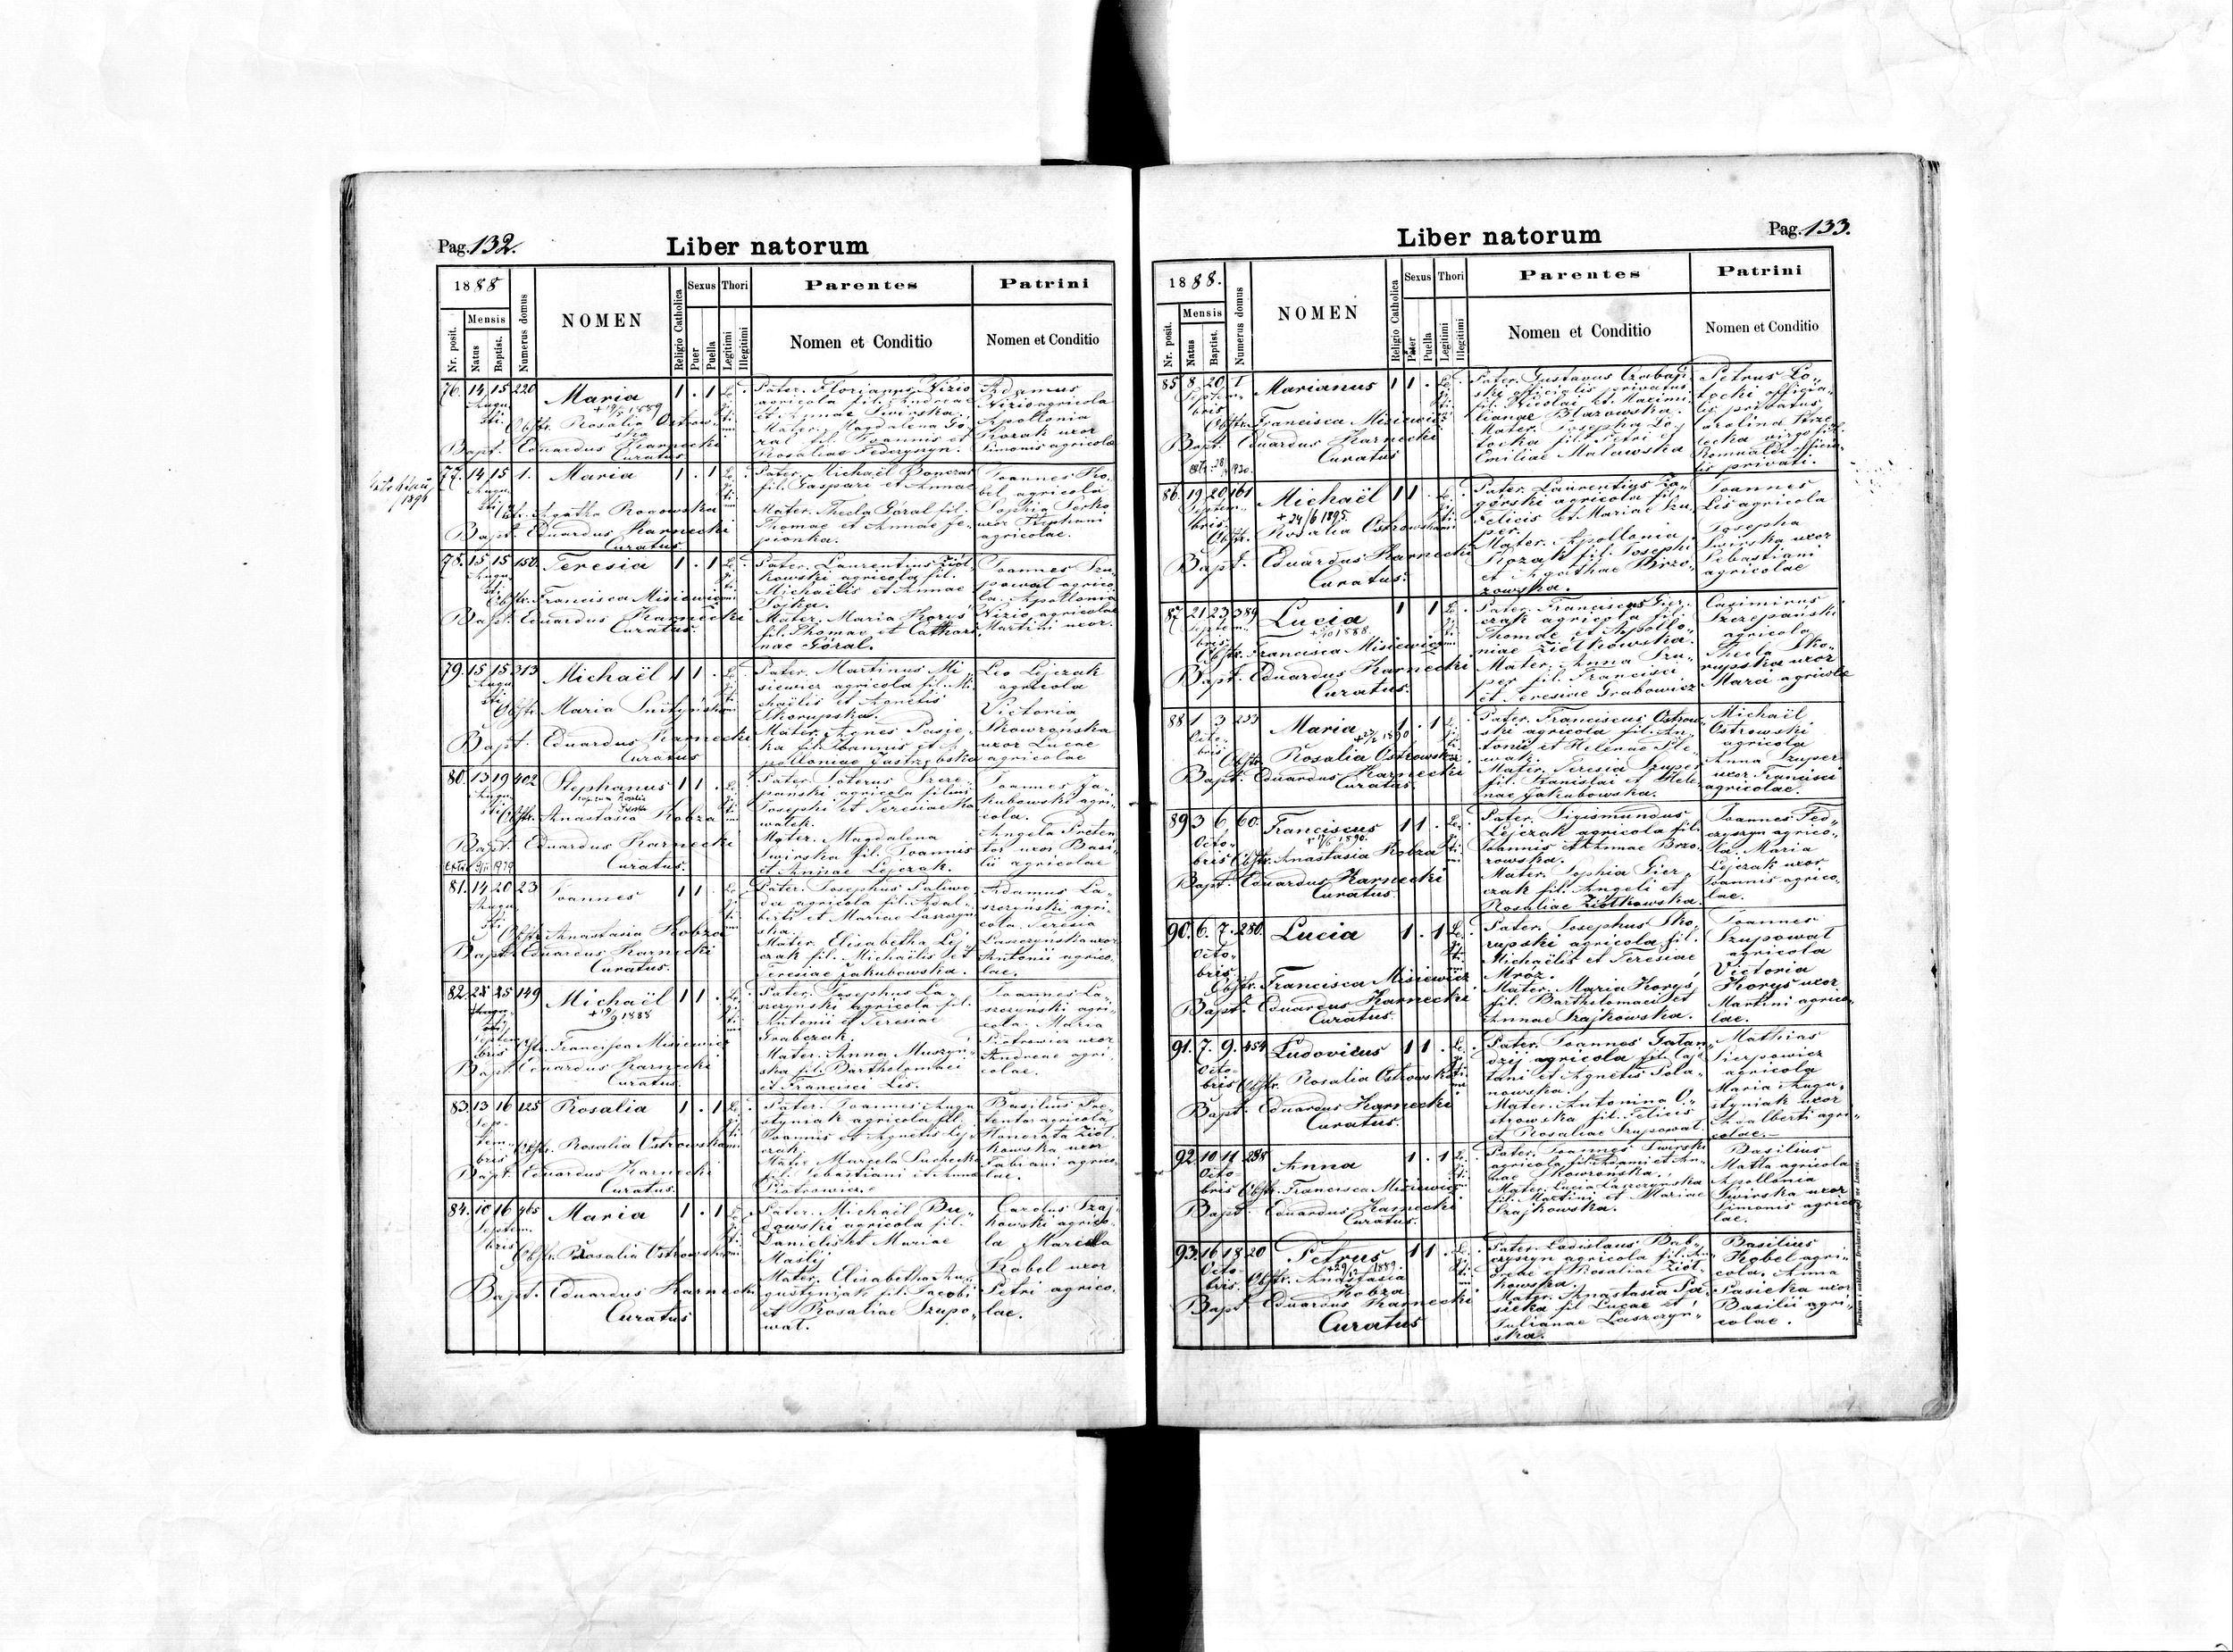 Pag. 132.
Liber natorum
1888
Nr. posit.
Mensis
Natus
Baptist.
Numerus domus
NOMEN
Religio Catholica
Sexus
Puer
Puella
Thori
Legitimi
Illegitimi
Parentes
Nomen et Conditio
Patrini
Nomen et Conditio
76. 14 15 220
Maria
1 . 1
Obstr. Rosalia Ostrowska
Bapt. Eduardus Karnecki
Curatus
Pater. Florianus Nizio
agricola fil. Andreae
et Annae Swirska.
Mater. Magdalena Gó
ral fil. Joannis et
Rosaliae Federyszyn.
Adamus
Nizio agricola
Apollonia
Kozak uxor
Simonis agricolae
77. 14 15 1.
Maria
1 . 1
Obstr. Agatha
Bapt. Eduardus Karnecki
Curatus
Pater. Michaël
fil. Gaspari et Annae
Mater. Thecla Góral fil.
Thomae et Annae
Joannes Ko
bel agricola
Sophia
uxor Stephani
agricolae.
78. 15 15 150
Teresia
1 . 1
Obstr. Francisca Misiewicz
Bapt. Eduardus Karnecki
Curatus.
Pater. Laurentius Ziół
kowski agricola fil.
Michaëlis et Annae
Mater. Maria Koryś
fil. Thomae et Cathari
nae Góral.
Joannes Szu
powat agrico
la. Apollonia
Nizio agricolae
Martini uxor.
79. 15 15 313
Michaël
1 1 .
Obstr. Maria
Bapt. Eduardus Karnecki
Curatus
Pater. Martinus Mi
siewicz agricola fil. Mi
chaëlis et Agnetis
Skorupska.
Mater. Agnes Pasie
ka fil. Joannis et A
polloniae Jastrzębska
Leo Lejczak
agricola
Victoria
Skowrońska
uxor Lucae
agricolae
80. 13 19 402
Stephanus
1 1 .
Obstr. Anastasia Kobza
Bapt. Eduardus Karnecki
Curatus.
Pater. Soterus Szcze
pański agricola filius
Josephi et Teresiae Ko
walek.
Mater. Magdalena
Swirska fil. Joannis
et Annae Lejczak.
Joannes Ja
kubowski agri
cola.
Angela Preten
tor uxor Basi
lii agricolae
81. 14 20 23
Joannes
1 1
Obstr. Anastasia Kobza
Bapt. Eduardus Karnecki
Curatus.
Pater. Josephus Paliwo
da agricola fil. Adal
berti et Mariae Laszczyn
ska.
Mater. Elisabetha Lej
czak fil. Michaëlis et
Teresiae Jakubowska.
Adamus La
szczyński agri
cola. Teresia
Laszczynska uxor
Antonii agrico
lae.
82. 25 149
Michaël
+ 19/9 1888
1 1 .
Septem
bris
Obstr. Francisca Misiewicz
Bapt. Eduardus Karnecki
Curatus.
Pater. Josephus La
szczyński agricola fil.
Antonii et Teresiae
Grabczak.
Mater. Anna Muszyn
ska fil. Bartholomaei
et Francisci Lis.
Joannes La
szczynski agri
cola. Maria
Piotrowicz uxor
Andreae agri
colae.
83. 13 16 125
Rosalia
1 . 1
Sep
tem
bris
Obstr. Rosalia Ostrowska
Bapt. Eduardus Karnecki
Curatus.
Pater. Joannes Augu
styniak agricola fil.
Joannis et Agnetis Lej
czak.
Mater. Marcela Suchecka
fil. Sebastiani et Annae
Piotrowicz.
Basilius Pre
tentor agricola
Honorata Ziół
kowska uxor
Fabiani agrico
lae.
84. 16 16 465
Maria
1 . 1
Septem
bris
Obstr. Rosalia Ostrowska
Bapt. Eduardus Karnecki
Curatus
Pater. Michaël Bu
dowski agricola fil.
Danielis et Mariae
Maslij
Mater. Elisabetha Au
gustyniak fil. Jacobi
et Rosaliae Szupo
wat.
Carolus Szaj
kowski agrico
la
Kobel uxor
Petri agrico
lae.
Pag. 133.
Liber natorum
1888.
Nr. posit.
Mensis
Natus
Baptist.
Numerus domus
NOMEN
Religio Catholica
Sexus
Puella
Thori
Legitimi
Illegitimi
Parentes
Nomen et Conditio
Patrini
Nomen et Conditio
85 8 20 I
Marianus
1 1 .
Septem
bris
Obstr. Francisca Misiewicz
Bapt. Eduardus Karnecki
Curatus
Pater. Gustavus Czabaj
ski officialis privatus
fil. Nicolai et Maximi
lianae Błazowska.
Mater. Josepha Lo
tocka fil. Petri et
Emiliae Malawska
Petrus Lo
tocki officia
lis privatus
Carolina Strze
lecka virgo fil.
Romualdi officia
lis privati.
86. 19 20 161
Michaël
+ 24/6 1895.
1 1
Septem
bris
Obstr. Rosalia Ostrowska
Bapt. Eduardus Karnecki
Curatus.
Pater. Laurentius Za
górski agricola fil.
Felicis et Mariae Szu
per.
Mater. Apollonia
Kozak fil. Josephi
et Agathae Brzo
zowska.
Joannes
Lis agricola
Josepha
Swirska uxor
Sebastiani
agricolae
87 21 23 389
Lucia
1 1
Septem
bris
Obstr. Francisca Misiewicz
Bapt. Eduardus Karnecki
Curatus.
Pater. Franciscus Gier
czak agricola fil.
Thomae et Apollo
niae Ziółkowska.
Mater. Anna Szu
per fil. Francisci
et Teresiae Grabowicz
Casimirus
Szczepański
agricola
Thecla Sko
rupska uxor
Marci agricolae
88 1 3 253
Maria
1 . 1
Octo
bris
Obstr. Rosalia Ostrowska
Bapt. Eduardus Karnecki
Curatus.
Pater. Franciscus Ostrow
ski agricola fil. An
tonii et Helenae Ste
wak.
Mater. Teresia Szuper
fil. Stanislai et Hele
nae Jakubowska.
Michaël
Ostrowski
agricola
Anna Szuper
uxor Francisci
agricolae.
89 3 6 60.
Franciscus
1 1 .
Octo
bris
Obstr. Anastasia Kobza
Bapt. Eduardus Karnecki
Curatus
Pater. Sigismundus
Lejczak agricola fil.
Joannis et Annae Brzo
zowska.
Mater. Sophia Gier
czak fil. Angeli et
Rosaliae Ziółkowska.
Joannes Fed
czyszyn agrico
la. Maria
Lejczak uxor
Joannis agrico
lae.
90. 6. 7. 280.
Lucia
1 . 1
Octo
bris
Obstr. Francisca Misiewicz
Bapt. Eduardus Karnecki
Curatus.
Pater. Josephus Sko
rupski agricola fil.
Michaëlis et Teresiae
Mroz.
Mater. Maria Koryś
fil. Bartholomaei et
Annae Szajkowska.
Joannes
Szupowat
agricola
Victoria
Korys uxor
Martini agrico
lae.
91. 7. 9. 454
Ludovicus
1 1 .
Octo
bris
Obstr. Rosalia Ostrowska
Bapt. Eduardus Karnecki
Curatus.
Pater. Joannes Gatan
dzij agricola fil. Caje
tani et Agnetis Pola
nowska.
Mater. Antonina O
strowska fil. Felicis
et Rosaliae Szupowat.
Mathias
Sierpowicz
agricola
Maria Augu
styniak uxor
Adalberti agri
colae.
92. 10 11 288
Anna
1 . 1
Octo
bris
Obstr. Francisca Misiewicz
Bapt. Eduardus Karnecki
Curatus.
Pater. Joannes Swirski
agricola fil. Adami et An
nae Skowronska.
Mater. Lucia Laszczynska
fil. Martini et Mariae
Szajkowska.
Basilius
Matla agricola
Apollonia
Swirska uxor
Simonis agrico
lae.
93. 16 18 20
Petrus
+ 29/12 1889.
1 1
Octo
bris.
Obstr. Anastasia
Kobza
Bapt. Eduardus Karnecki
Curatus
Pater. Ladislaus Bab
czyszyn agricola fil. An
dreae et Rosaliae Ziół
kowska.
Mater. Anastasia Pa
sieka fil Lucae et
Julianae Laszczyn
ska.
Basilius
Kobel agri
cola. Anna
Pasieka uxor
Basilii agri
colae.